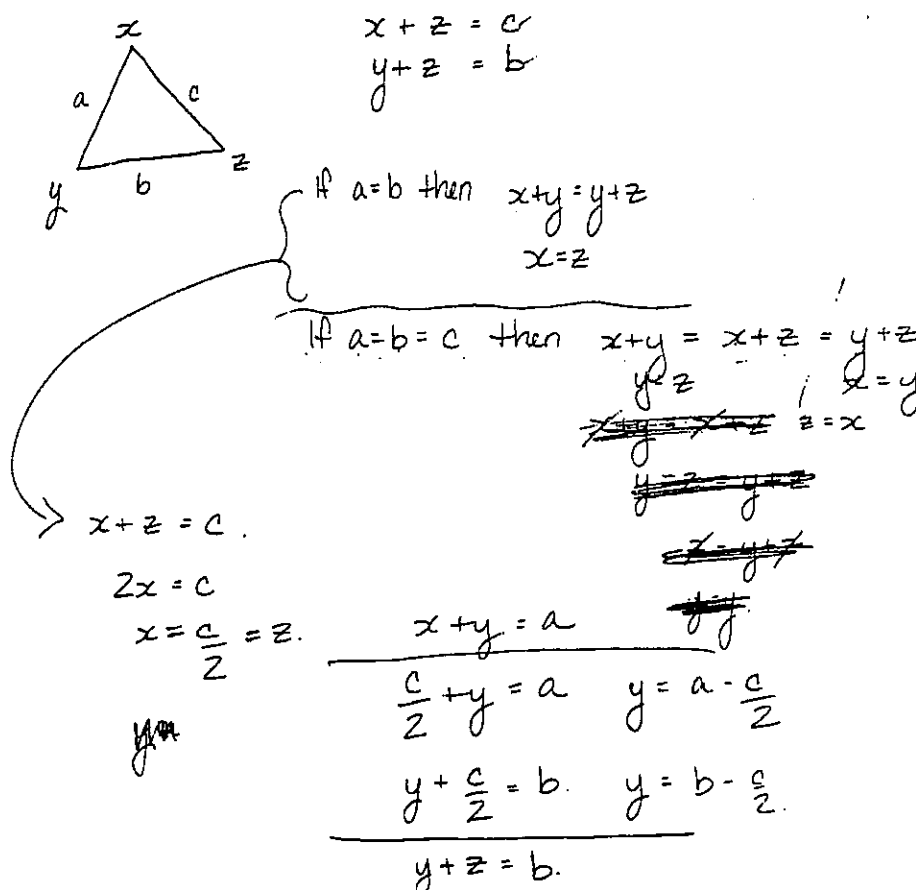 x
a
c
y
b
z
x + z = c
y + z = b
If a = b then x+y = y+z
x = z
If a = b = c then x+y = x+z = y+z
y = z x = y
z = x
x + z = c.
2x = c
x = c/2 = z.
x + y = a
c/2 + y = a y = a - c/2
y + c/2 = b. y = b - c/2.
y + z = b.